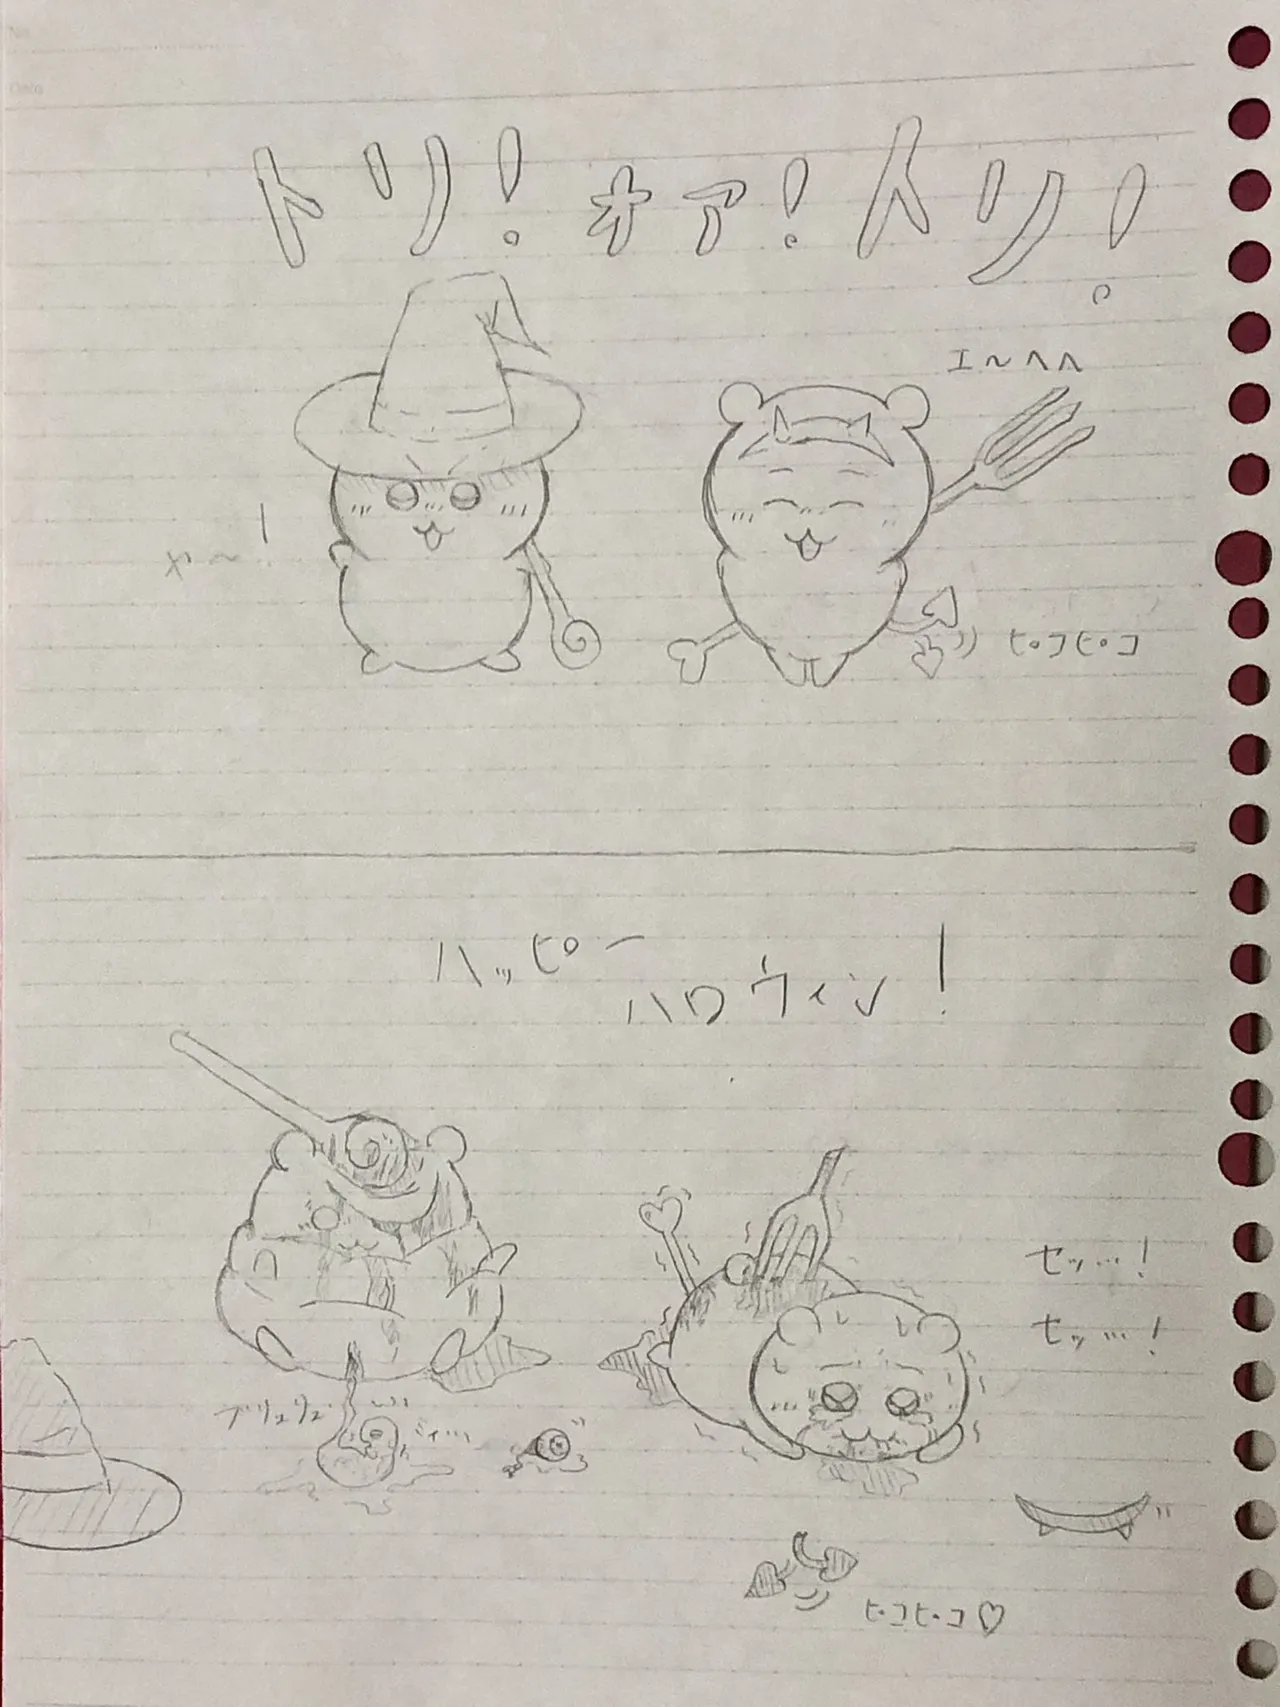 Date
トリ！ォァ！トリ！
エ〜へへ
ヤ〜！
ピコピコ
ハッピー
ハロウィン！
セッ…！
セッ…！
ブリュリュ
ミィ…
ピコピコ♡